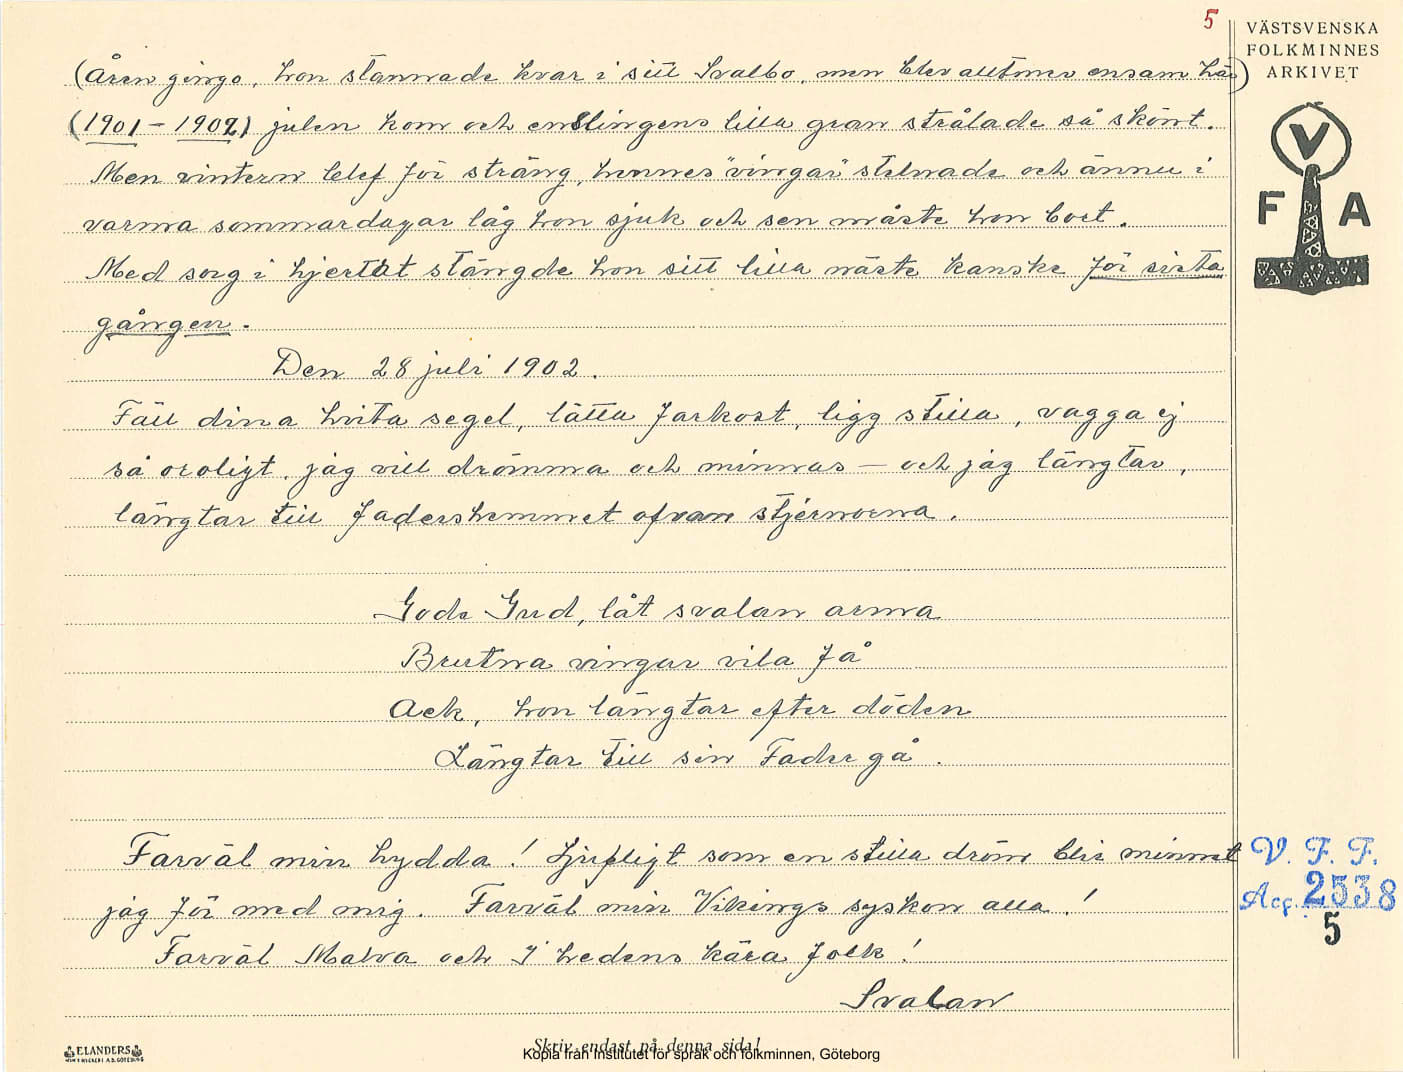 5
VÄSTSVENSKA
FOLKMINNES
ARKIVET
V
F A
(Åren gingo, hon stannade kvar i sitt Svalbo, men blev alltmer ensam här)
(1901 – 1902) julen kom och enslingens lilla gran strålade så skönt.
Men vintern blef för sträng, hennes "vingar" stelnade och ännu i
varma sommardagar låg hon sjuk och sen måste hon bort.
Med sorg i hjertat stängde hon sitt lilla näste kanske för sista
gången.
Den 28 juli 1902.
Fäll dina hvita segel, lätta farkost, ligg stilla, vagga ej
så oroligt. jag vill drömma och minnas — och jag längtar,
längtar till fadershemmet ofvan stjernorna.
Gode Gud, låt svalan arma
Brutna vingar vila få
Ack, hon längtar efter döden
Längtar till sin Fader gå.
Farväl min hydda! Ljufligt som en stilla dröm blir minnet
jag för med mig. Farväl min Vikings syskon alla!
Farväl Malva och I hedens kära folk!
Svalan
V. F. F.
Acc. 2538
5
ELANDERS
Skriv endast på denna sida!
Kopia från Institutet för språk och folkminnen, Göteborg